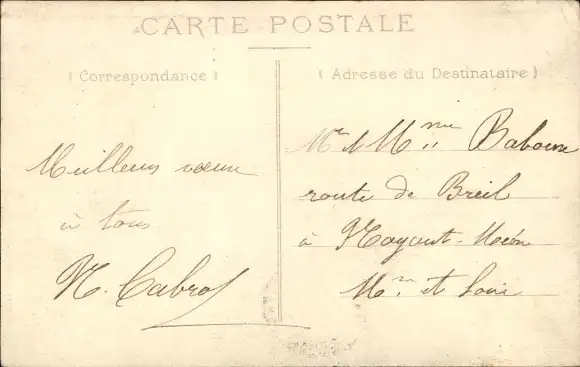 CARTE POSTALE
( Correspondance )
Meilleurs vœux
à tous
( Adresse du Destinataire )
Mr et Mme
route de Breil
à Noyant-Méon
M. et Loire